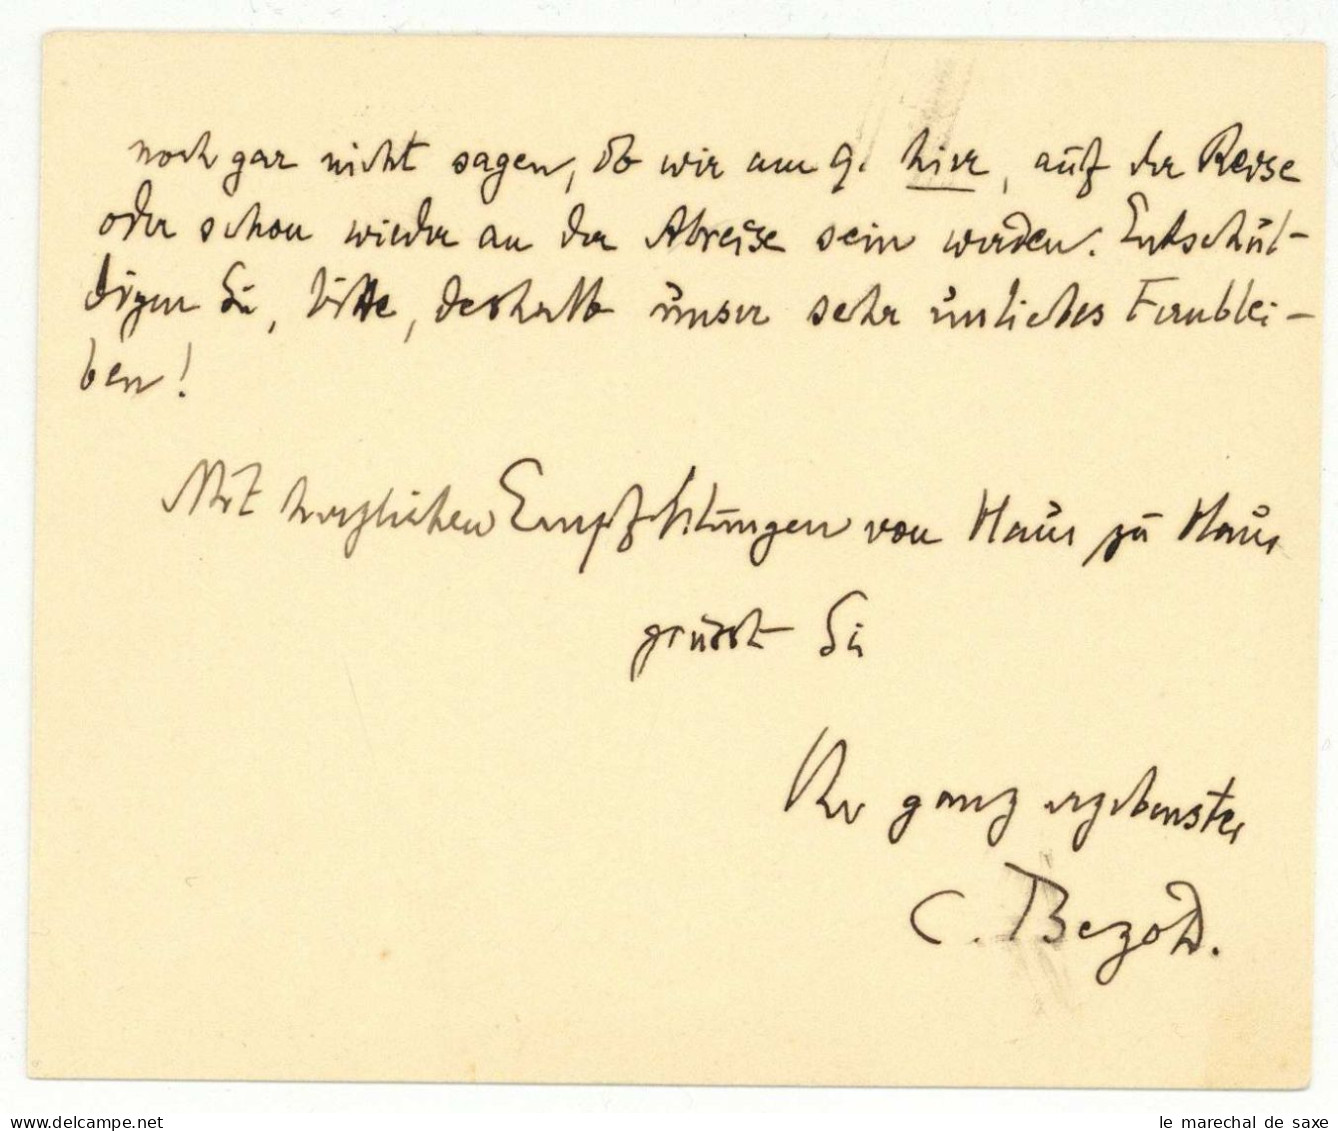 noch gar nicht sagen, ob wir am 9. hier, auf der Reise
oder schon wieder an der Abreise sein werden. Entschul-
digen Sie, bitte, deshalb unser sehr unliebes Fernblei-
ben!
Mit herzlichen Empfehlungen von Haus zu Haus
grüsst Sie
Ihr ganz ergebenster
C. Bezold.
www.delcampe.net
le marechal de saxe